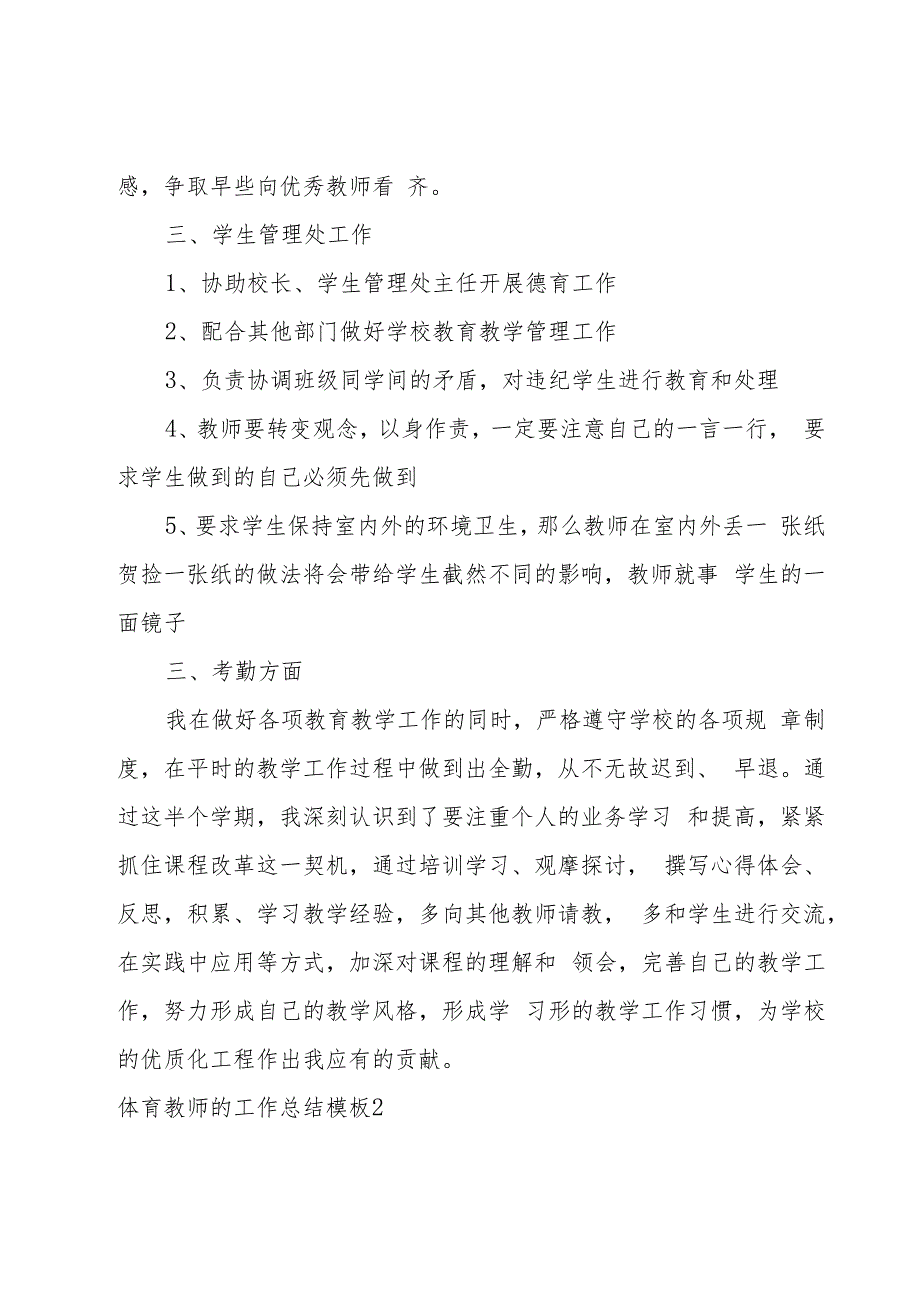 感，争取早些向优秀教师看 齐。
三、学生管理处工作
1、协助校长、学生管理处主任开展德育工作
2、配合其他部门做好学校教育教学管理工作
3、负责协调班级同学间的矛盾，对违纪学生进行教育和处理
4、教师要转变观念，以身作责，一定要注意自己的一言一行， 要
求学生做到的自己必须先做到
5、要求学生保持室内外的环境卫生，那么教师在室内外丢一 张纸
贺捡一张纸的做法将会带给学生截然不同的影响，教师就事 学生的一
面镜子
三、考勤方面
我在做好各项教育教学工作的同时，严格遵守学校的各项规 章制
度，在平时的教学工作过程中做到出全勤，从不无故迟到、 早退。通
过这半个学期，我深刻认识到了要注重个人的业务学习 和提高，紧紧
抓住课程改革这一契机，通过培训学习、观摩探讨， 撰写心得体会、
反思，积累、学习教学经验，多向其他教师请教， 多和学生进行交流，
在实践中应用等方式，加深对课程的理解和 领会，完善自己的教学工
作，努力形成自己的教学风格，形成学 习形的教学工作习惯，为学校
的优质化工程作出我应有的贡献。
体育教师的工作总结模板2